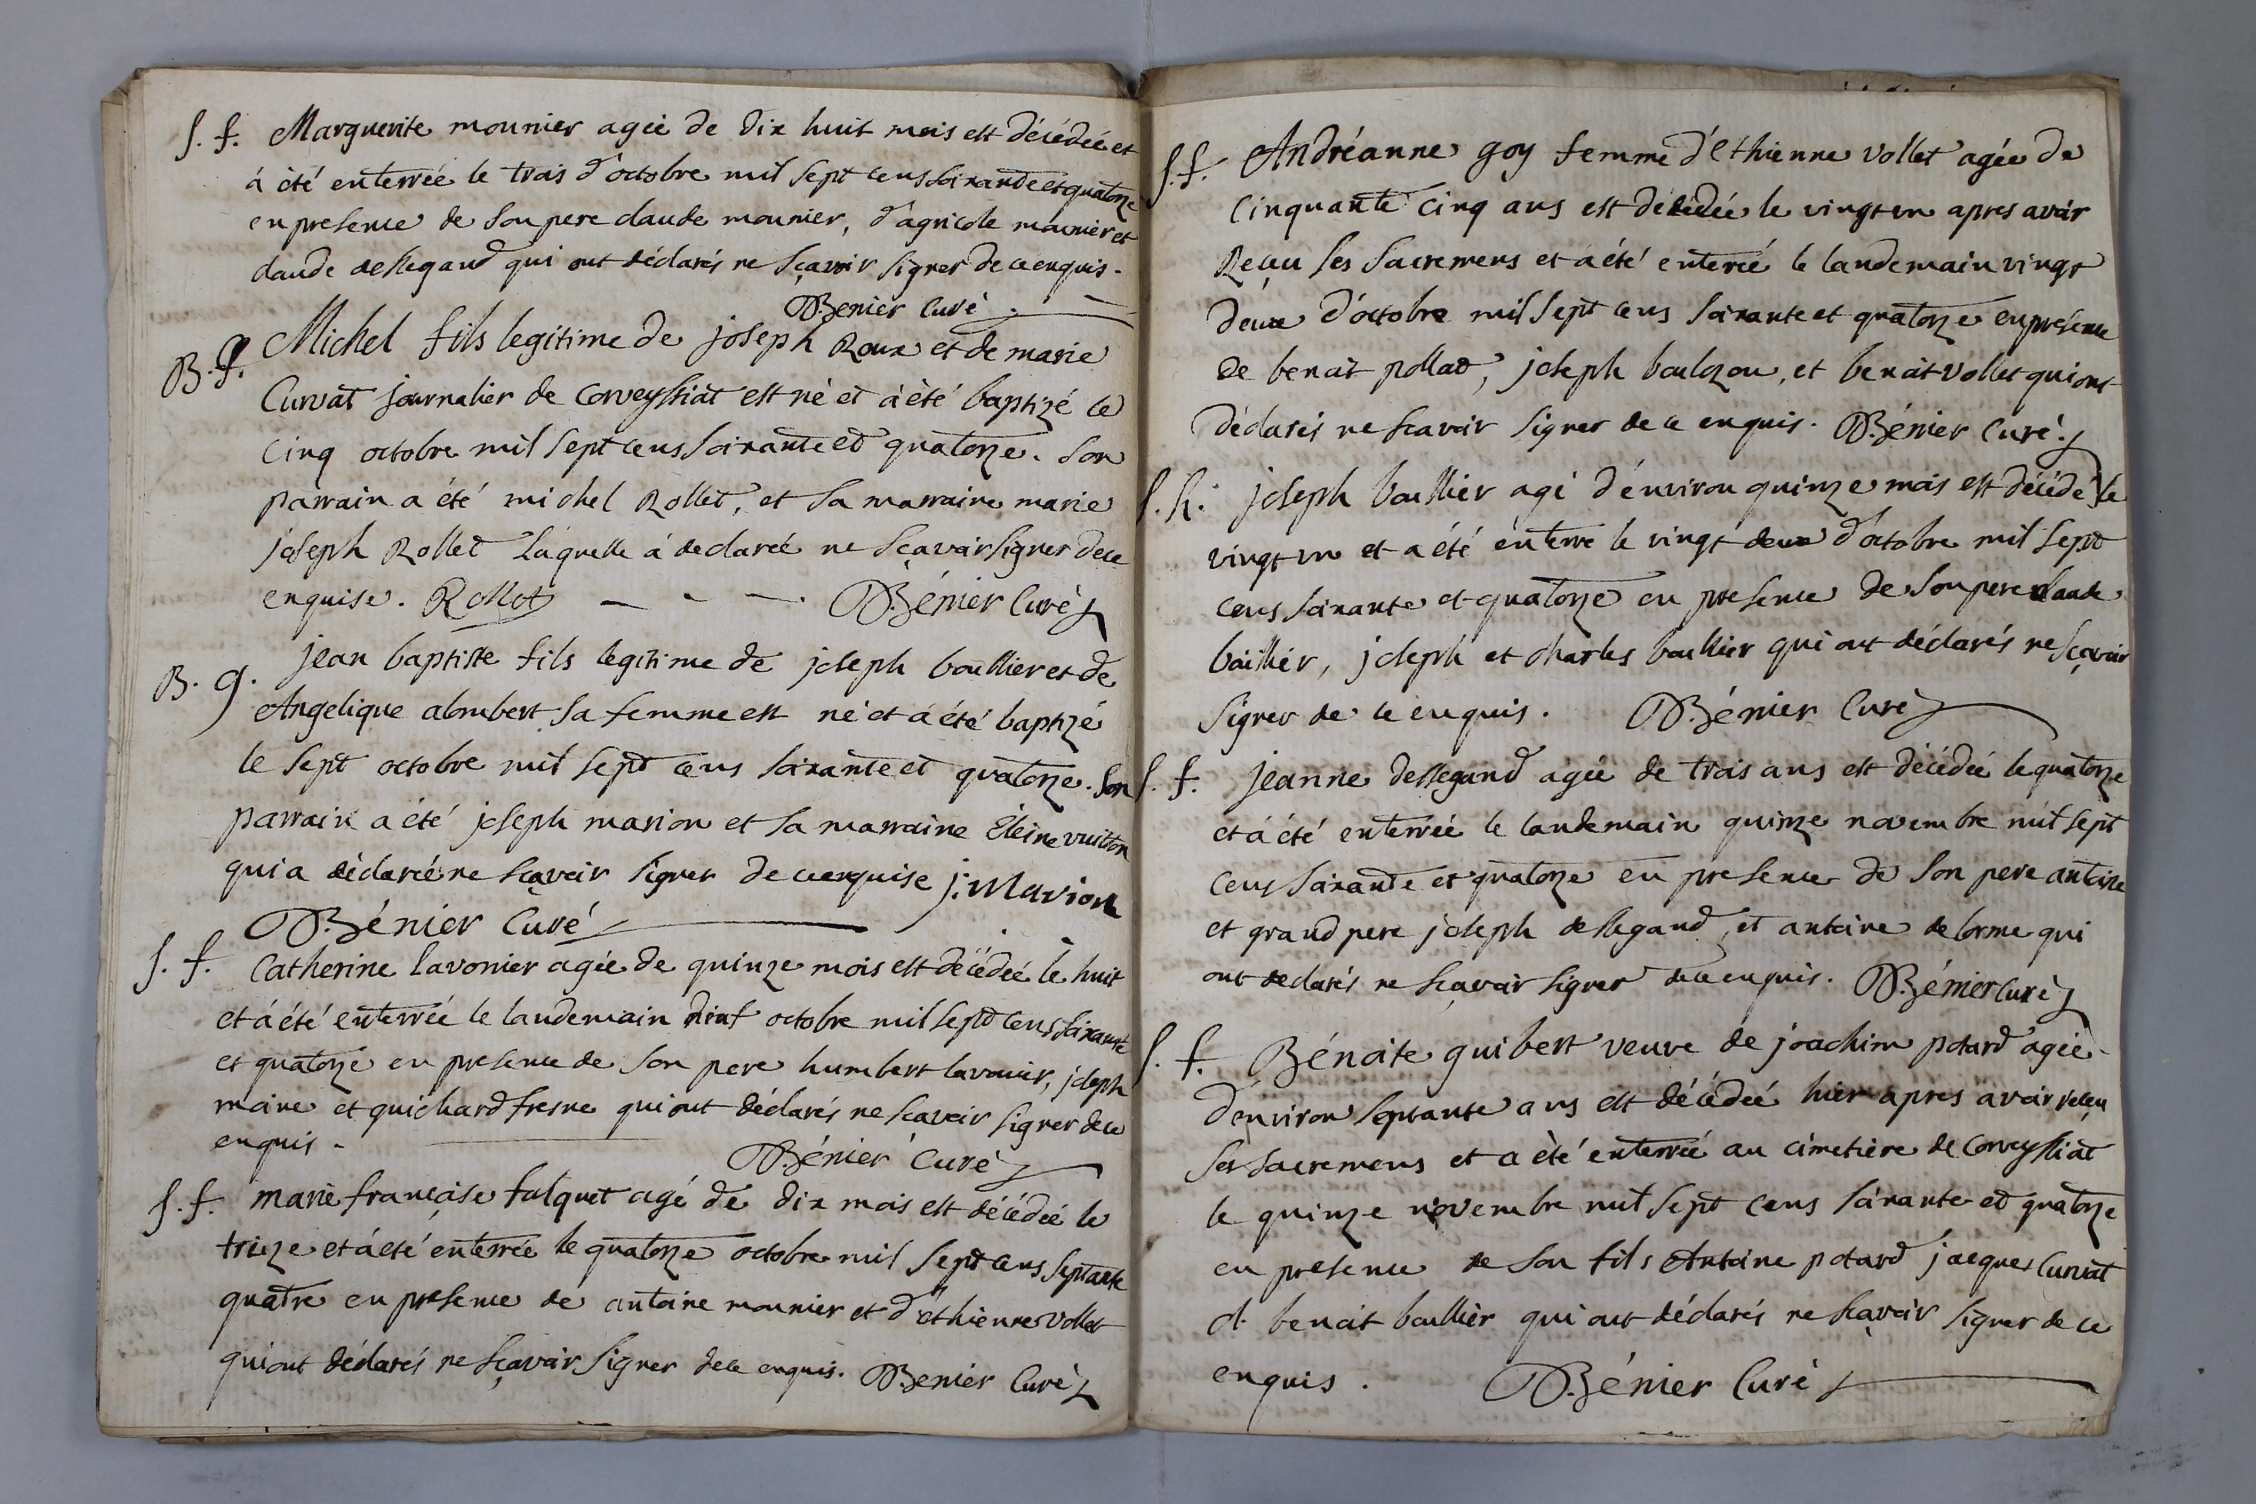 S. f. Marguerite mounier agée de dix huit mois est décédée et
á été enterrée le trois d'octobre mil sept cens soixante et quatorze
en presence de son pere claude mounier, d'agricole mounier et
claude dellegand qui ont déclarés ne sçavoir signer de ce enquis.
Bénier Curé
B. g. Michel fils legitime de joseph Roux et de marie
Curvat journalier de Corveyssiat est né et á été baptizé le
cinq octobre mil sept cens soixante et quatorze. Son
parrain a été michel Rollet, et sa marraine marie
joseph Rollet laquelle á declarée ne sçavoir signer de ce
enquise. Rollet Bénier Curé
B. g. jean baptiste fils legitime de joseph boullier et de
Angelique alombert sa femme est né et á été baptizé
le sept octobre mil sept cens soixante et quatorze. Son
parrain a été joseph marion et sa marraine Eleine vuitton
qui a déclarée ne sçavoir signer de ce enquise j. Marion
Bénier Curé
S. f. Catherine lavonier agée de quinze mois est décédée le huit
et á été enterrée le landemain neuf octobre mil sept cens soixante
et quatorze en presence de son pere humbert lavonier, joseph
moine et guichard fresne qui ont déclarés ne scavoir signer de ce
enquis. Bénier Curé
S. f. marie françoise falquet agé de dix mois est décédée le
trieze et á été enterrée le quatorze octobre mil sept cens septante
quatre en presence de antoine mounier et d'ethienne vollet
qui ont déclarés ne sçavoir signer de ce enquis. Bénier Curé
S. f. Andréanne goy femme d'ethienne vollet agée de
cinquante cinq ans est décédée le vingt un apres avoir
Reçeu ses sacremens et á été enterrée le landemain vingt
deux d'octobre mil sept cens soixante et quatorze en présence
de benoit pollat, joseph boulozon, et benoit vollet qui ont
déclarés ne scavoir signer de ce enquis. Bénier Curé
S. h. joseph boullier agé d'environ quinze mois est décédé le
vingt un et a été enterré le vingt deux d'octobre mil sept
cens soixante et quatorze en presence de son pere claude
boullier, joseph et charles boullier qui ont déclarés ne sçavoir
signer de ce enquis. Bénier Curé
S. f. jeanne dellegand agée de trois ans est décédée le quatorze
et á été enterrée le landemain quinze novembre mil sept
cens soixante et quatorze en presence de son pere antoine
et grand pere joseph dellegand, et antoine delorme qui
ont declarés ne sçavoir signer de ce enquis. Bénier Curé
S. f. Bénoite guibert veuve de joachim potard agée
d'environ septante ans est décédée hier apres avoir reçeu
ses sacremens et a été enterrée au cimetière de Corveyssiat
le quinze novembre mil sept cens soixante et quatorze
en presence de son fils Antoine potard jacques Curvat
et benoit boullier qui ont déclarés ne sçavoir signer de ce
enquis. Bénier Curé